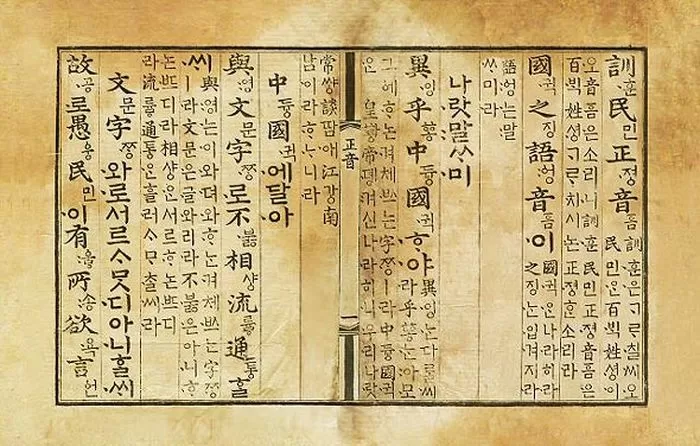 訓훈民민正졍音ᅙᅳᆷ
訓훈은ᄀᆞᄅᆞ칠씨오
民민ᄋᆞᆫ百ᄇᆡᆨ姓셩이
오音ᅙᅳᆷ은소리니訓훈民민正졍音ᅙᅳᆷ은
百ᄇᆡᆨ姓셩ᄀᆞᄅᆞ치시논正졍ᄒᆞᆫ소리라
國귁之징語ᅌᅥᆼ音ᅙᅳᆷ이
國귁ᄋᆞᆫ나라히라
之징ᄂᆞᆫ입겨지라
語ᅌᅥᆼ는말
ᄊᆞ미라
나랏말ᄊᆞ미
異잉乎ᅘᅩᆼ中듕國귁ᄒᆞ야
異잉ᄂᆞᆫ다ᄅᆞᆯ씨라
乎ᅘᅩᆼᄂᆞᆫ아모
그ᅌᅦᄒᆞ논겨체ᄡᅳ는字ᄍᆞᆼㅣ라中듕國귁
ᄋᆞᆫ皇ᅘᅪᆼ帝뎽겨신나라히니우리나랏
正音
常썅談땀애江강南
남이라ᄒᆞᄂᆞ니라
中듕國귁에달아
與영文문字ᄍᆞᆼ로不부ᇙ相샹流류ᇢ通통ᄒᆞᆯ
씨
與영는이와뎌와ᄒᆞ논겨체ᄡᅳ는字ᄍᆞᆼ
ㅣ라文문은글와리라不부ᇙ은아니ᄒᆞ
논ᄠᅳ디라相샹ᄋᆞᆫ서르ᄒᆞ논ᄠᅳ디
라流류ᇢ通통ᄋᆞᆫ흘러ᄉᆞᄆᆞᄎᆞᆯ씨라
文문字ᄍᆞᆼ와로서르ᄉᆞᄆᆞᆺ디아니ᄒᆞᆯ씨
故공로愚ᅌᅮᆼ民민이有ᅌᅮᇢ所송欲욕言언